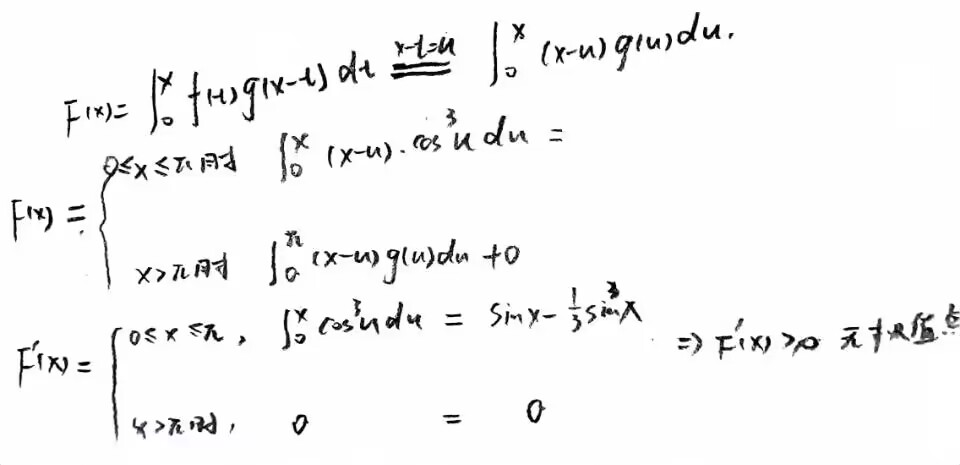 F(x)=∫₀ˣ f(t)g(x-t)dt \overset{x-t=u}{=} ∫₀ˣ (x-u)g(u)du.
F(x)={ 0≤x≤π时 ∫₀ˣ (x-u)·cos³u du =
x>π时 ∫₀^π (x-u)g(u)du+0
F'(x)={ 0≤x≤π, ∫₀ˣ cos³u du = sinx-⅓sin³x ⇒ F'(x)≥0 无极值点
x>π时, 0 = 0